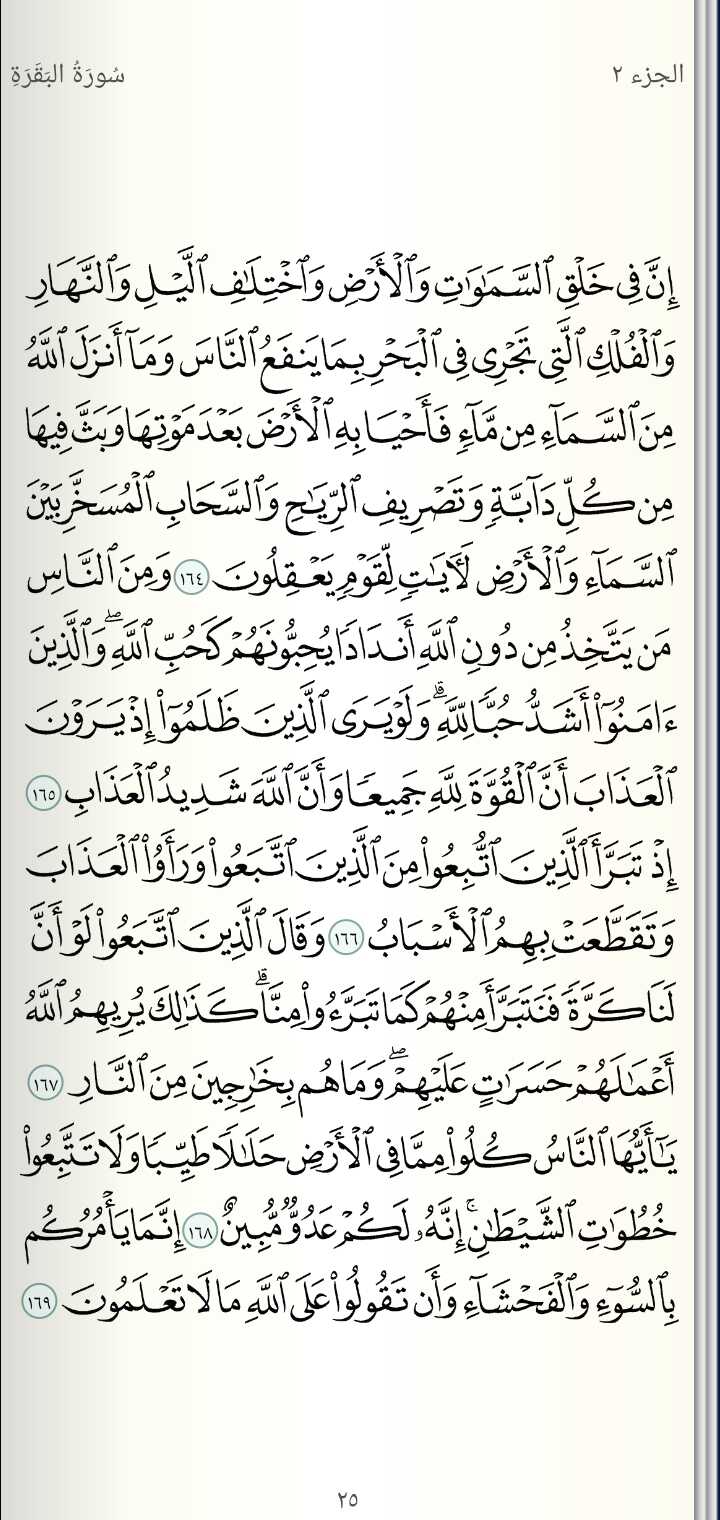 الجزء ٢
سُورَةُ البَقَرَةِ
إِنَّ فِي خَلْقِ ٱلسَّمَٰوَٰتِ وَٱلْأَرْضِ وَٱخْتِلَٰفِ ٱلَّيْلِ وَٱلنَّهَارِ
وَٱلْفُلْكِ ٱلَّتِي تَجْرِي فِي ٱلْبَحْرِ بِمَا يَنفَعُ ٱلنَّاسَ وَمَآ أَنزَلَ ٱللَّهُ
مِنَ ٱلسَّمَآءِ مِن مَّآءٍ فَأَحْيَا بِهِ ٱلْأَرْضَ بَعْدَ مَوْتِهَا وَبَثَّ فِيهَا
مِن كُلِّ دَآبَّةٍ وَتَصْرِيفِ ٱلرِّيَٰحِ وَٱلسَّحَابِ ٱلْمُسَخَّرِ بَيْنَ
ٱلسَّمَآءِ وَٱلْأَرْضِ لَأٓيَٰتٍ لِّقَوْمٍ يَعْقِلُونَ ١٦٤ وَمِنَ ٱلنَّاسِ
مَن يَتَّخِذُ مِن دُونِ ٱللَّهِ أَندَادًا يُحِبُّونَهُمْ كَحُبِّ ٱللَّهِۖ وَٱلَّذِينَ
ءَامَنُوٓا۟ أَشَدُّ حُبًّا لِّلَّهِۗ وَلَوْ يَرَى ٱلَّذِينَ ظَلَمُوٓا۟ إِذْ يَرَوْنَ
ٱلْعَذَابَ أَنَّ ٱلْقُوَّةَ لِلَّهِ جَمِيعًا وَأَنَّ ٱللَّهَ شَدِيدُ ٱلْعَذَابِ ١٦٥
إِذْ تَبَرَّأَ ٱلَّذِينَ ٱتُّبِعُوا۟ مِنَ ٱلَّذِينَ ٱتَّبَعُوا۟ وَرَأَوُا۟ ٱلْعَذَابَ
وَتَقَطَّعَتْ بِهِمُ ٱلْأَسْبَابُ ١٦٦ وَقَالَ ٱلَّذِينَ ٱتَّبَعُوا۟ لَوْ أَنَّ
لَنَا كَرَّةً فَنَتَبَرَّأَ مِنْهُمْ كَمَا تَبَرَّءُوا۟ مِنَّاۗ كَذَٰلِكَ يُرِيهِمُ ٱللَّهُ
أَعْمَٰلَهُمْ حَسَرَٰتٍ عَلَيْهِمْۖ وَمَا هُم بِخَٰرِجِينَ مِنَ ٱلنَّارِ ١٦٧
يَٰٓأَيُّهَا ٱلنَّاسُ كُلُوا۟ مِمَّا فِي ٱلْأَرْضِ حَلَٰلًا طَيِّبًا وَلَا تَتَّبِعُوا۟
خُطُوَٰتِ ٱلشَّيْطَٰنِۚ إِنَّهُۥ لَكُمْ عَدُوٌّ مُّبِينٌ ١٦٨ إِنَّمَا يَأْمُرُكُم
بِٱلسُّوٓءِ وَٱلْفَحْشَآءِ وَأَن تَقُولُوا۟ عَلَى ٱللَّهِ مَا لَا تَعْلَمُونَ ١٦٩
٢٥